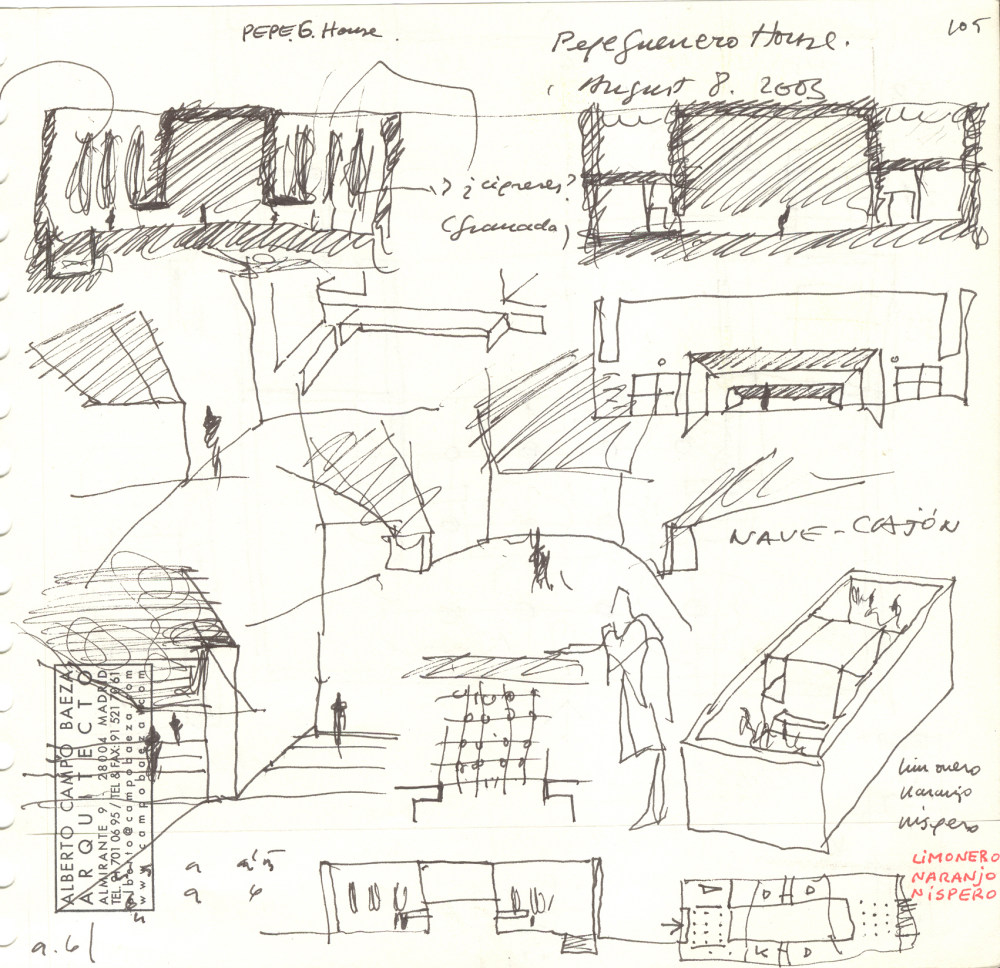 PEPE.G. House.
Pepe Guerrero House.
105
August 8. 2003
¿cipreses?
(Granada)
NAVE-CAJÓN
limonero
naranjo
níspero
LIMONERO
NARANJO
NÍSPERO
ALBERTO CAMPO BAEZA
ARQUITECTO
ALMIRANTE 9 28004 MADRID
TEL. 91 701 06 95 / TEL & FAX: 91 521 70 61
www.campobaeza.com
A
D H D
K H D